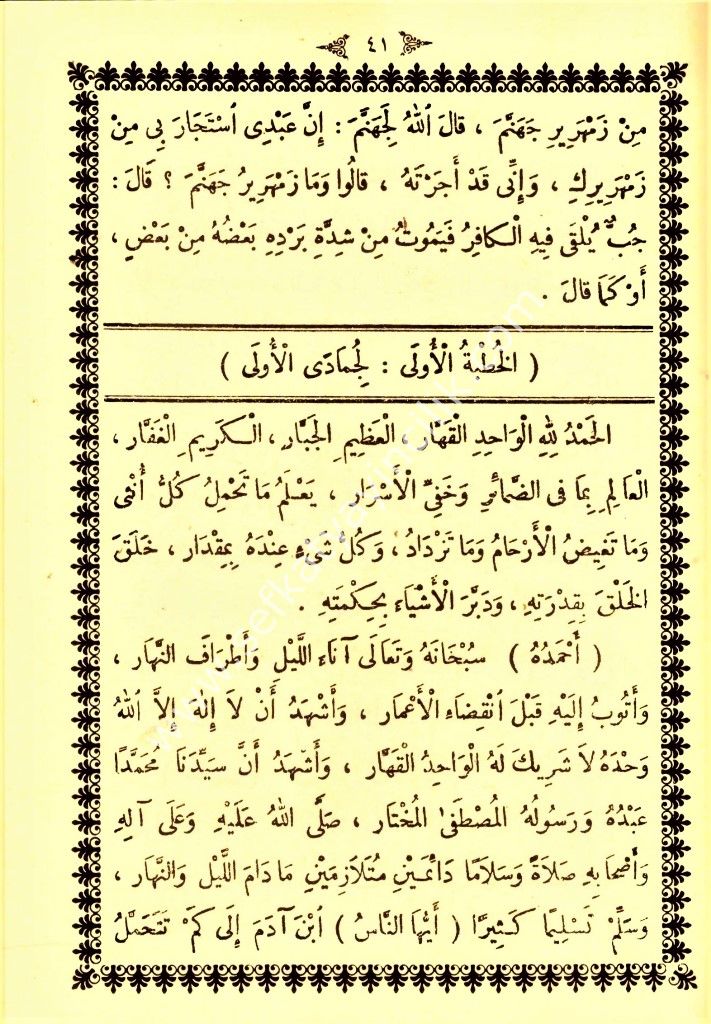 ٤١
مِنْ زَمْهَرِيرِ جَهَنَّمَ ، قالَ ٱللهُ لِجَهَنَّمَ : إِنَّ عَبْدِى ٱسْتَجَارَ بِى مِنْ
زَمْهَرِيرِكِ ، وَإِنِّى قَدْ أَجَرْتَهُ ، قالُوا وَمَا زَمْهَرِيرُ جَهَنَّمَ ؟ قَالَ :
جُبٌّ يُلْقَى فِيهِ الْكافِرُ فَيَمُوتُ مِنْ شِدَّةِ بَرْدِهِ بَعْضُهُ مِنْ بَعْضٍ ،
أَوْ كَمَا قالَ .
( الخُطْبَةُ الْأُولَى : لِجُمَادَى الْأُولَى )
الحَمْدُ لِلهِ الْوَاحِدِ الْقَهَّارِ ، الْعَظِيمِ الجَبَّارِ ، الْكَرِيمِ الْغَفَّارِ ،
الْعَالِمِ بِمَا فى الضَّمائرِ وَخَفِىِّ الْأَسْرَارِ ، يَعْلَمُ مَا تَحْمِلُ كُلُّ أُنْثى
وَمَا تَغِيضُ الْأَرْحَامُ وَمَا تَزْدَادُ ، وَكُلُّ شَىْءٍ عِنْدَهُ بِمِقْدَارٍ ، خَلَقَ
الخَلْقَ بِقِدْرَتِهِ ، وَدَبَّرَ الْأَشْيَاءَ بِحِكْمَتِهِ .
( أَحْمَدُهُ ) سُبْحَانَهُ وَتَعَالَى آنَاءَ اللَّيْلِ وَأَطْرَافَ النَّهَارِ ،
وَأَتُوبُ إِلَيْهِ قَبْلَ ٱنْقِضَاءِ الْأَعْمَارِ ، وَأَشْهَدُ أَنْ لاَ إِلٰهَ إِلاَّ ٱللهُ
وَحْدَهُ لاَ شَرِيكَ لَهُ الْوَاحِدُ الْقَهَّارِ ، وَأَشْهَدُ أَنَّ سَيِّدَنَا مُحَمَّدًا
عَبْدُهُ وَرَسُولُهُ المُصْطَفىٰ المُخْتَارِ ، صَلَّى ٱللهُ عَلَيْهِ وَعَلَى آلِهِ
وَأَصْحَابِهِ صَلاَةً وَسَلاَمًا دَائمَيْنِ مُتَلاَزِمَيْنِ مَا دَامَ اللَّيْلِ وَالنَّهَارِ ،
وَسَلِّمْ تَسْلِيمًا كَثِيرًا ( أَيُّهَا النَّاسُ ) ٱبْنَ آدَمَ إِلَى كَمْ تَتَحَمَّلُ